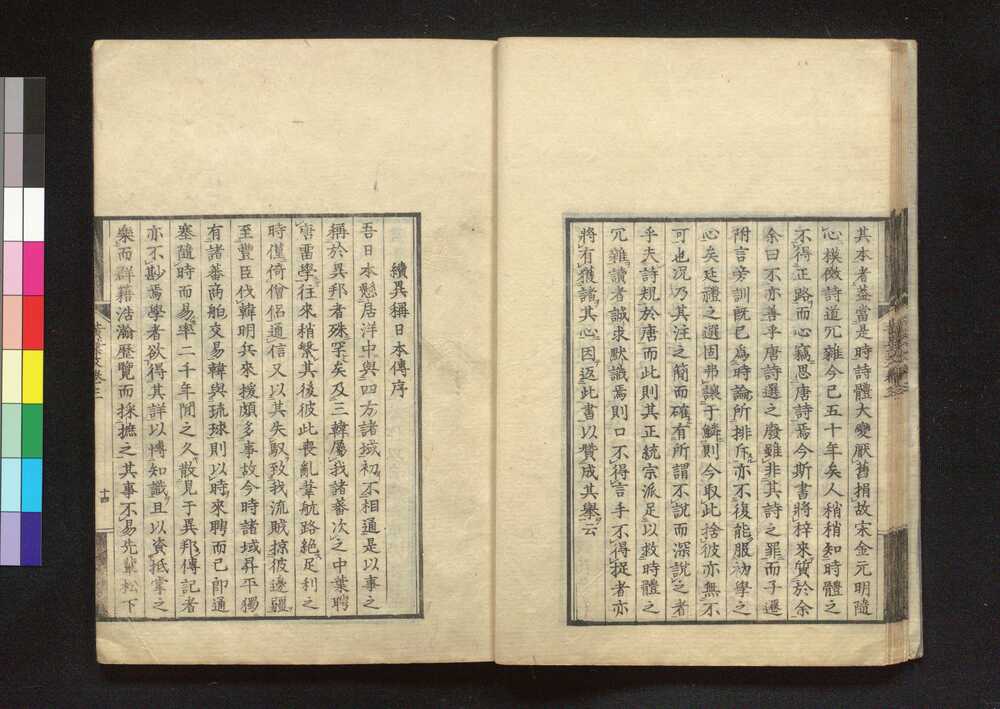 其本者蓋當是時詩體大變厭舊捐故宋金元明隨
心模倣詩道冗雜今已五十年矣人稍稍知時體之
不得正路而心竊思唐詩焉今斯書將梓來質於余
余曰不亦善乎唐詩選之廢雖非其詩之罪而子遷
附言旁訓既已爲時論所排斥亦不復能服初學之
心矣廷禮之選固弗讓于鱗則今取此捨彼亦無不
可也况乃其注之簡而確有所謂不說而深說之者
乎夫詩規於唐而此則其正統宗派足以救時體之
冗雜讀者誠求默識焉則口不得言手不得捉者亦
將有獲諸其心因返此書以贊成其舉云
續異稱日本傳序
吾日本懸居洋中與四方諸域初不相通是以事之
稱於異邦者殊罕矣及三韓屬我諸蕃次之中葉聘
唐留學往來稍繁其後彼此喪亂葦航路絶足利之
時僅倚僧侶通信又以其失馭致我流賊掠彼邊疆
至豐臣伐韓明兵來援頗多事故今時諸域昇平獨
有諸蕃商舶交易韓與琉球則以時來聘而已即通
塞隨時而易率二千年間之久散見于異邦傳記者
亦不尠焉學者欲得其詳以博知識且以資抵掌之
樂而群籍浩瀚歷覽而採摭之其事不易先輩松下
十四